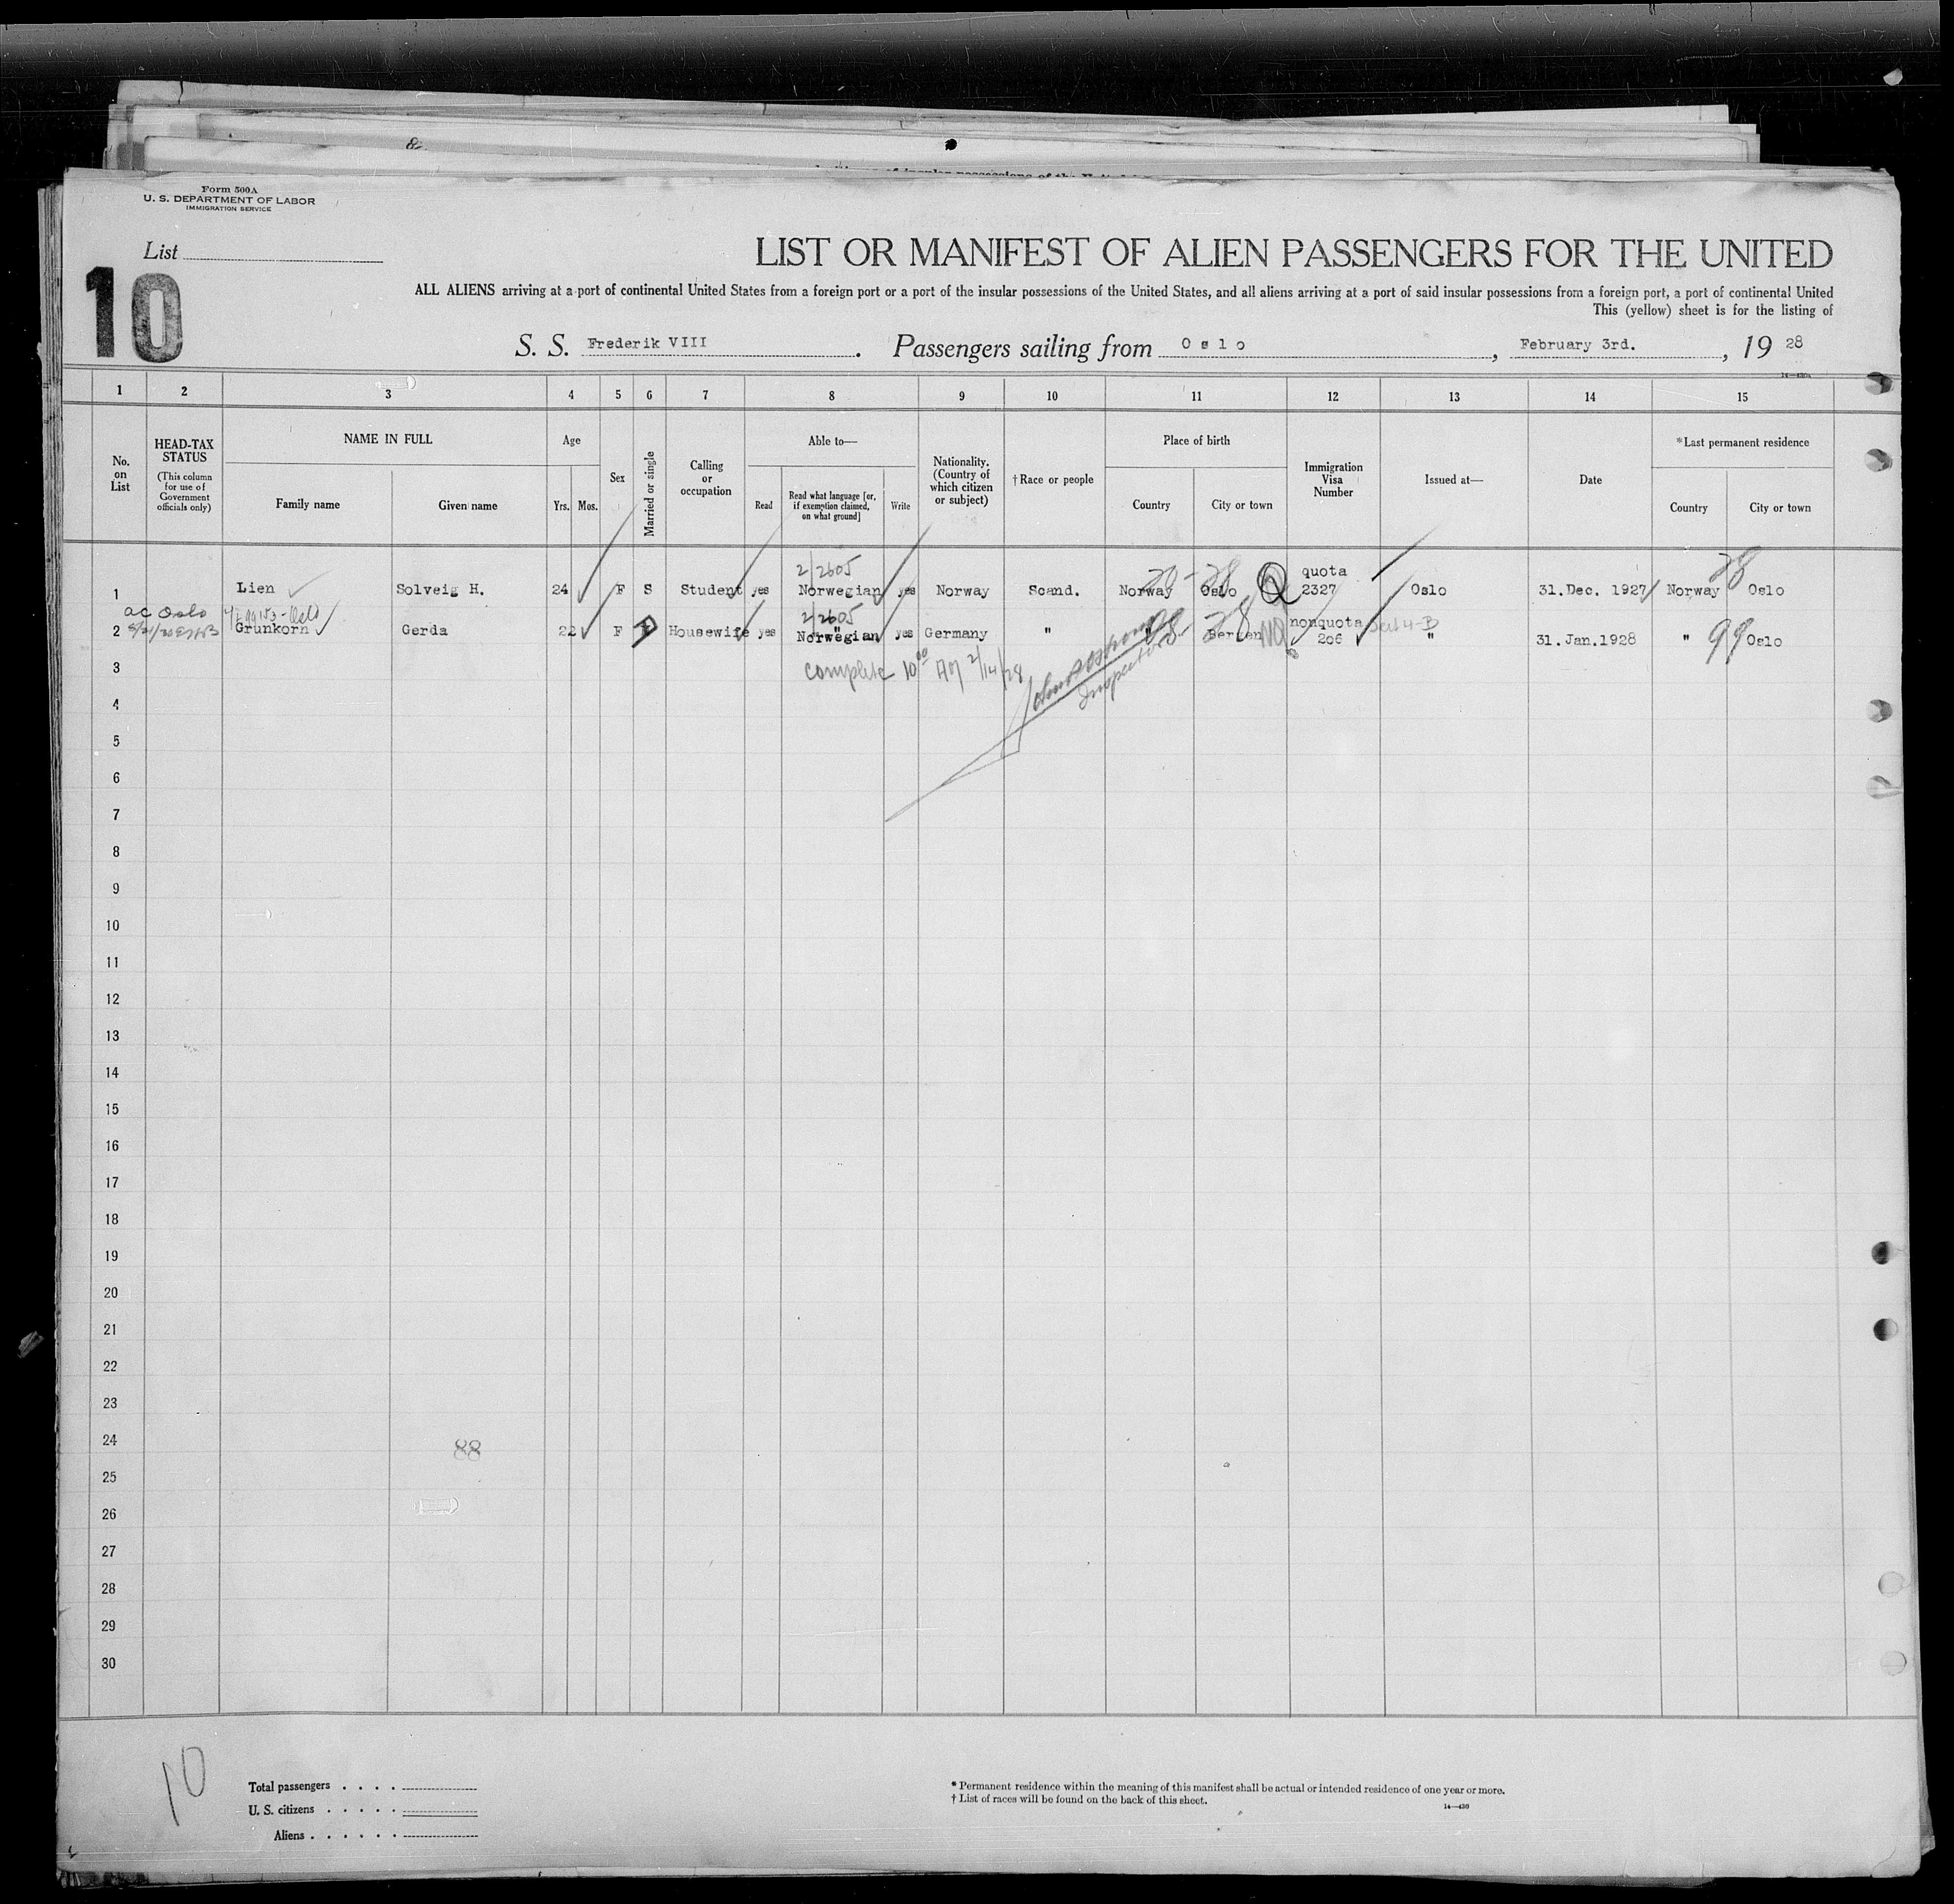 Form 500A
U. S. DEPARTMENT OF LABOR
IMMIGRATION SERVICE
List
10
LIST OR MANIFEST OF ALIEN PASSENGERS FOR THE UNITED
ALL ALIENS arriving at a port of continental United States from a foreign port or a port of the insular possessions of the United States, and all aliens arriving at a port of said insular possessions from a foreign port, a port of continental United
This (yellow) sheet is for the listing of
S. S. Frederik VIII. Passengers sailing from Oslo, February 3rd., 19 28
1 2 3 4 5 6 7 8 9 10 11 12 13 14 15
No. on List
HEAD-TAX STATUS
(This column for use of Government officials only)
NAME IN FULL
Family name Given name
Age
Yrs. Mos.
Sex
Married or single
Calling or occupation
Able to—
Read
Read what language [or, if exemption claimed, on what ground]
Write
Nationality. (Country of which citizen or subject)
†Race or people
Place of birth
Country City or town
Immigration Visa Number
Issued at—
Date
*Last permanent residence
Country City or town
2/2605 quota 28
1 Lien Solveig H. 24 F S Student yes Norwegian yes Norway Scand. Norway Oslo Q 2327 Oslo 31.Dec. 1927 Norway Oslo
ac Oslo 2/2605 nonquota
2 Grunkorn Gerda 22 F Housewife yes Norwegian yes Germany " " Bergen 206 " 31.Jan.1928 " 99 Oslo
3 complete 10 00 2/14/28 Inspector
4
5
6
7
8
9
10
11
12
13
14
15
16
17
18
19
20
21
22
23
24 88
25
26
27
28
29
30
10
Total passengers . . . .
U. S. citizens . . . . .
Aliens . . . . . .
* Permanent residence within the meaning of this manifest shall be actual or intended residence of one year or more.
† List of races will be found on the back of this sheet.
14—430